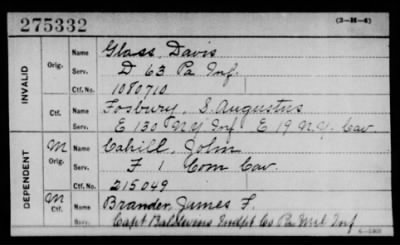 275332 (3-H-6)
INVALID
Orig. Name Glass, Davis
Serv. D 63 Pa Inf.
Ctf. No. 1080710
Ctf. Name Fosbury, S. Augustus
Serv. E 130 N.Y. Inf E 19 N.Y. Cav
DEPENDENT
M Orig. Name Cahill, John
Serv. F 1 Com Cav.
Ctf. No. 215049
M Ctf. Name Brander, James F.
Serv. Capt Baldwins Indpt Co Pa Mil Inf